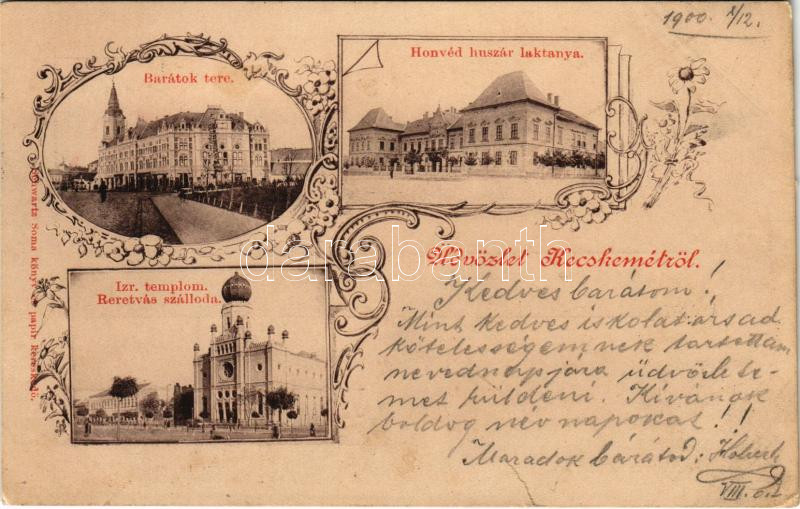 1900. I/12.
Barátok tere.
Honvéd huszár laktanya.
Üdvözlet Kecskemétröl.
Izr. templom.
Reretvás szálloda.
Schwartz Soma könyv és papir kereskedő.
Kedves barátom!
Mint kedves iskolatársad
kötelességemnek tartottam
nevednapjára üdvözle te-
met küldeni. Kívánok
boldog név napokat!!
Maradok barátod:
VIII. o.
darabanth.com